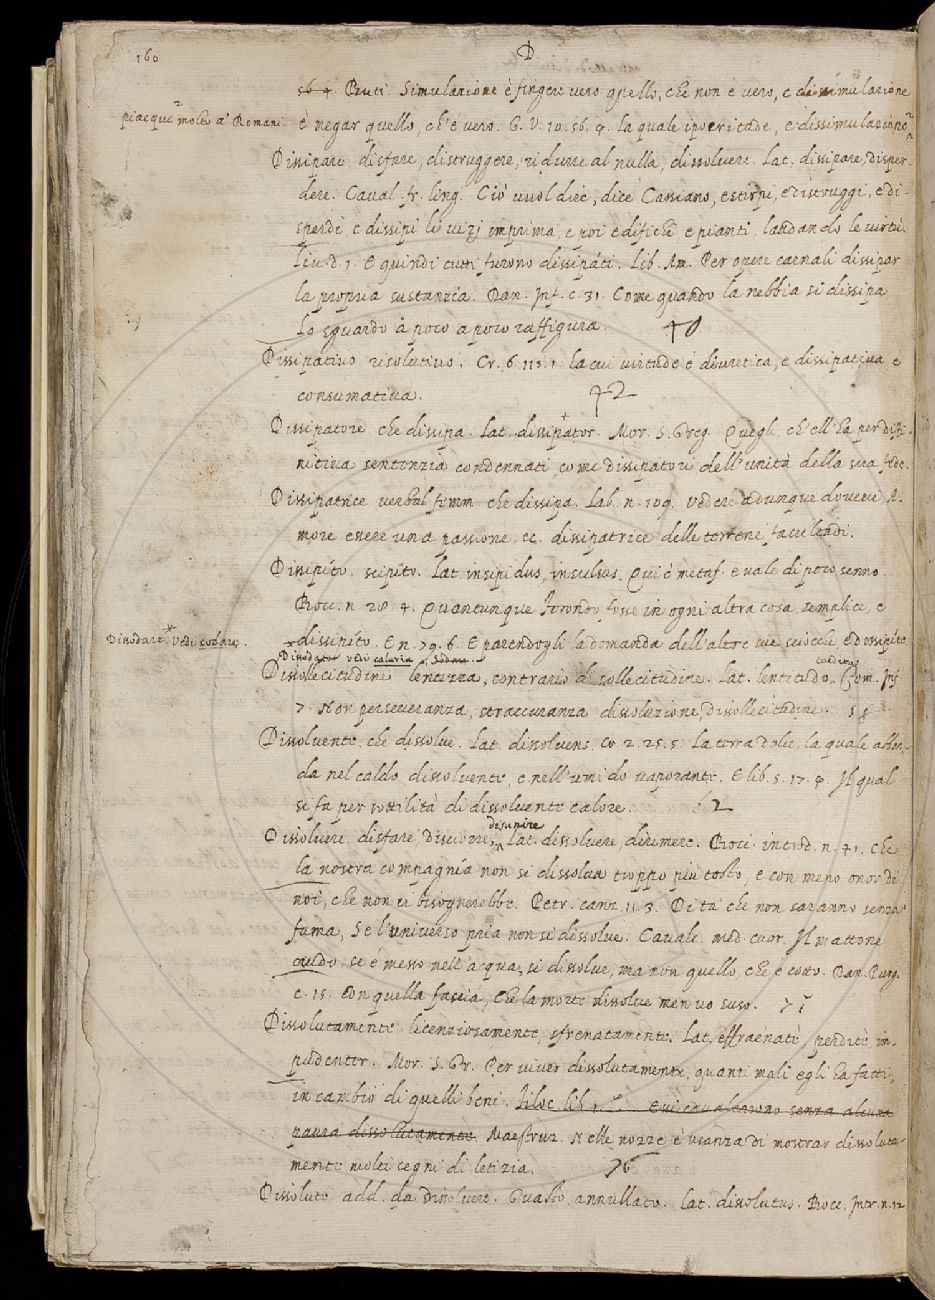 160
D
56. 4. Buti. Simulazione è fingere vero quello, che non è vero, e dissimulazione
piacque molto a' Romani. è negar quello, ch'è vero. G. V. 10. 56. 4. la quale ipocritade, e dissimulazione
Dissipare disfare, distruggere, ridurre al nulla, dissolvere. Lat. dissipare, disper-
dere. Caval. fr. ling. Ciò vuol dire, dice Cassiano, estirpi, e distruggi, e di-
sperdi, e dissipi li vizj imprima, e poi edifichi e pianti, laudando le virtù.
Liv. d. 1. E quindi tutti furono dissipati. Lib. Am. Per opere carnali dissipar
la propria sustanzia. Dan. Inf. c. 31. Come quando la nebbia si dissipa
Lo sguardo à poco a poco raffigura.
Dissipativo risolutivo. Cr. 6. 115. 1. la cui virtude è diuretica, e dissipativa e
consumativa.
Dissipatore che dissipa. Lat. dissipator. Mor. S. Greg. Quegli, ch'ell'ha per diffi-
nitiva sentenzia condennati come dissipatori dell'unità della sua fede.
Dissipatrice verbal femm. che dissipa. Lab. n. 109. Vedere adunque dovevi A-
more essere una passione ec. dissipatrice delle terrene facultadi.
Dissipito. scipito. Lat. insipidus, insulsus. Qui è metaf. e vale di poco senno.
Bocc. n. 28. 4. Quantunque Ferondo fosse in ogni altra cosa semplice, e
Disnodare. Vedi codare. dissipito. E n. 79. 6. E parendogli la domanda dell'altre sue sciocche, e dissipite
Dissodare vedi caluria, sodare.
Dissollecitudine lentezza, contrario di sollecitudine. Lat. lentitudo, Com. Inf.
7. Non perseveranza, straccuranza dissoluzione, dissollecitudine.
Dissolvente. che dissolve. Lat. dissolvens. Cr. 2. 25. 5. La terra dolce, la quale abbon-
da nel caldo dissolvente, e nell'umido vaporante. E lib. 5. 17. 4. Il qual
si fa per sottilità di dissolvente calore.
Dissolvere disfare, disciorre, disunire Lat. dissolvere, dirimere. Bocc. introd. n. 41. Che
la nostra compagnia non si dissolva troppo più tosto, e con meno onor di
noi, che non ci bisognerebbe. Petr. canz. 11. 5. Di tà che non saranno senza
fama, Se l'universo pria non si dissolve. Cavalc. med. cuor. Il mattone
crudo, se è messo nell'acqua, si dissolve, ma non quello, che è cotto. Dan. Purg.
c. 15. Con quella fascia, Che la morte dissolve men vo suso.
Dissolutamente licenziosamente, sfrenatamente. Lat. effraenatè, perditè, im-
pudenter. Mor. S. Gr. Per viver dissolutamente, quanti mali egli ha fatti,
in cambio di quelli beni. Filoc. lib. 1. Qui cavalcarono senza alcuna
paura dissolutamente. Maestruz. Nelle nozze è usanza di mostrar dissoluta-
mente molti segni di letizia.
Dissoluto add. da Dissolvere. Guasto. annullato. Lat. dissolutus. Bocc. Intr. n. 12